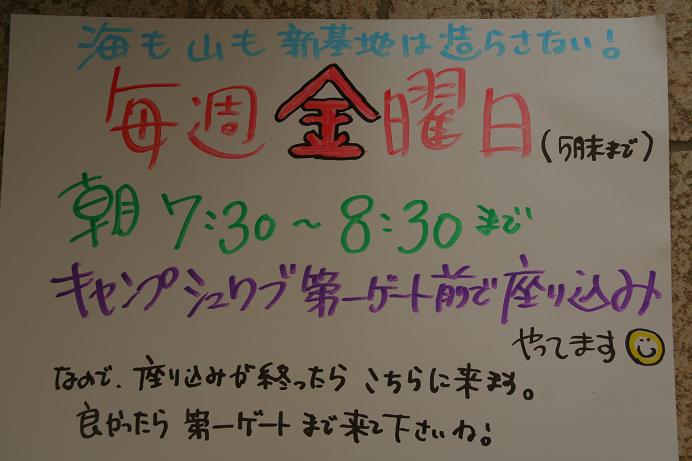 海も山も新基地は造らさない!
毎週金曜日(5月末まで)
朝7:30~8:30まで
キャンプシュワブ第一ゲート前で座り込み
やってます
なので、座り込みが終ったらこちらに来ます。
良かったら第一ゲートまで来て下さいね!